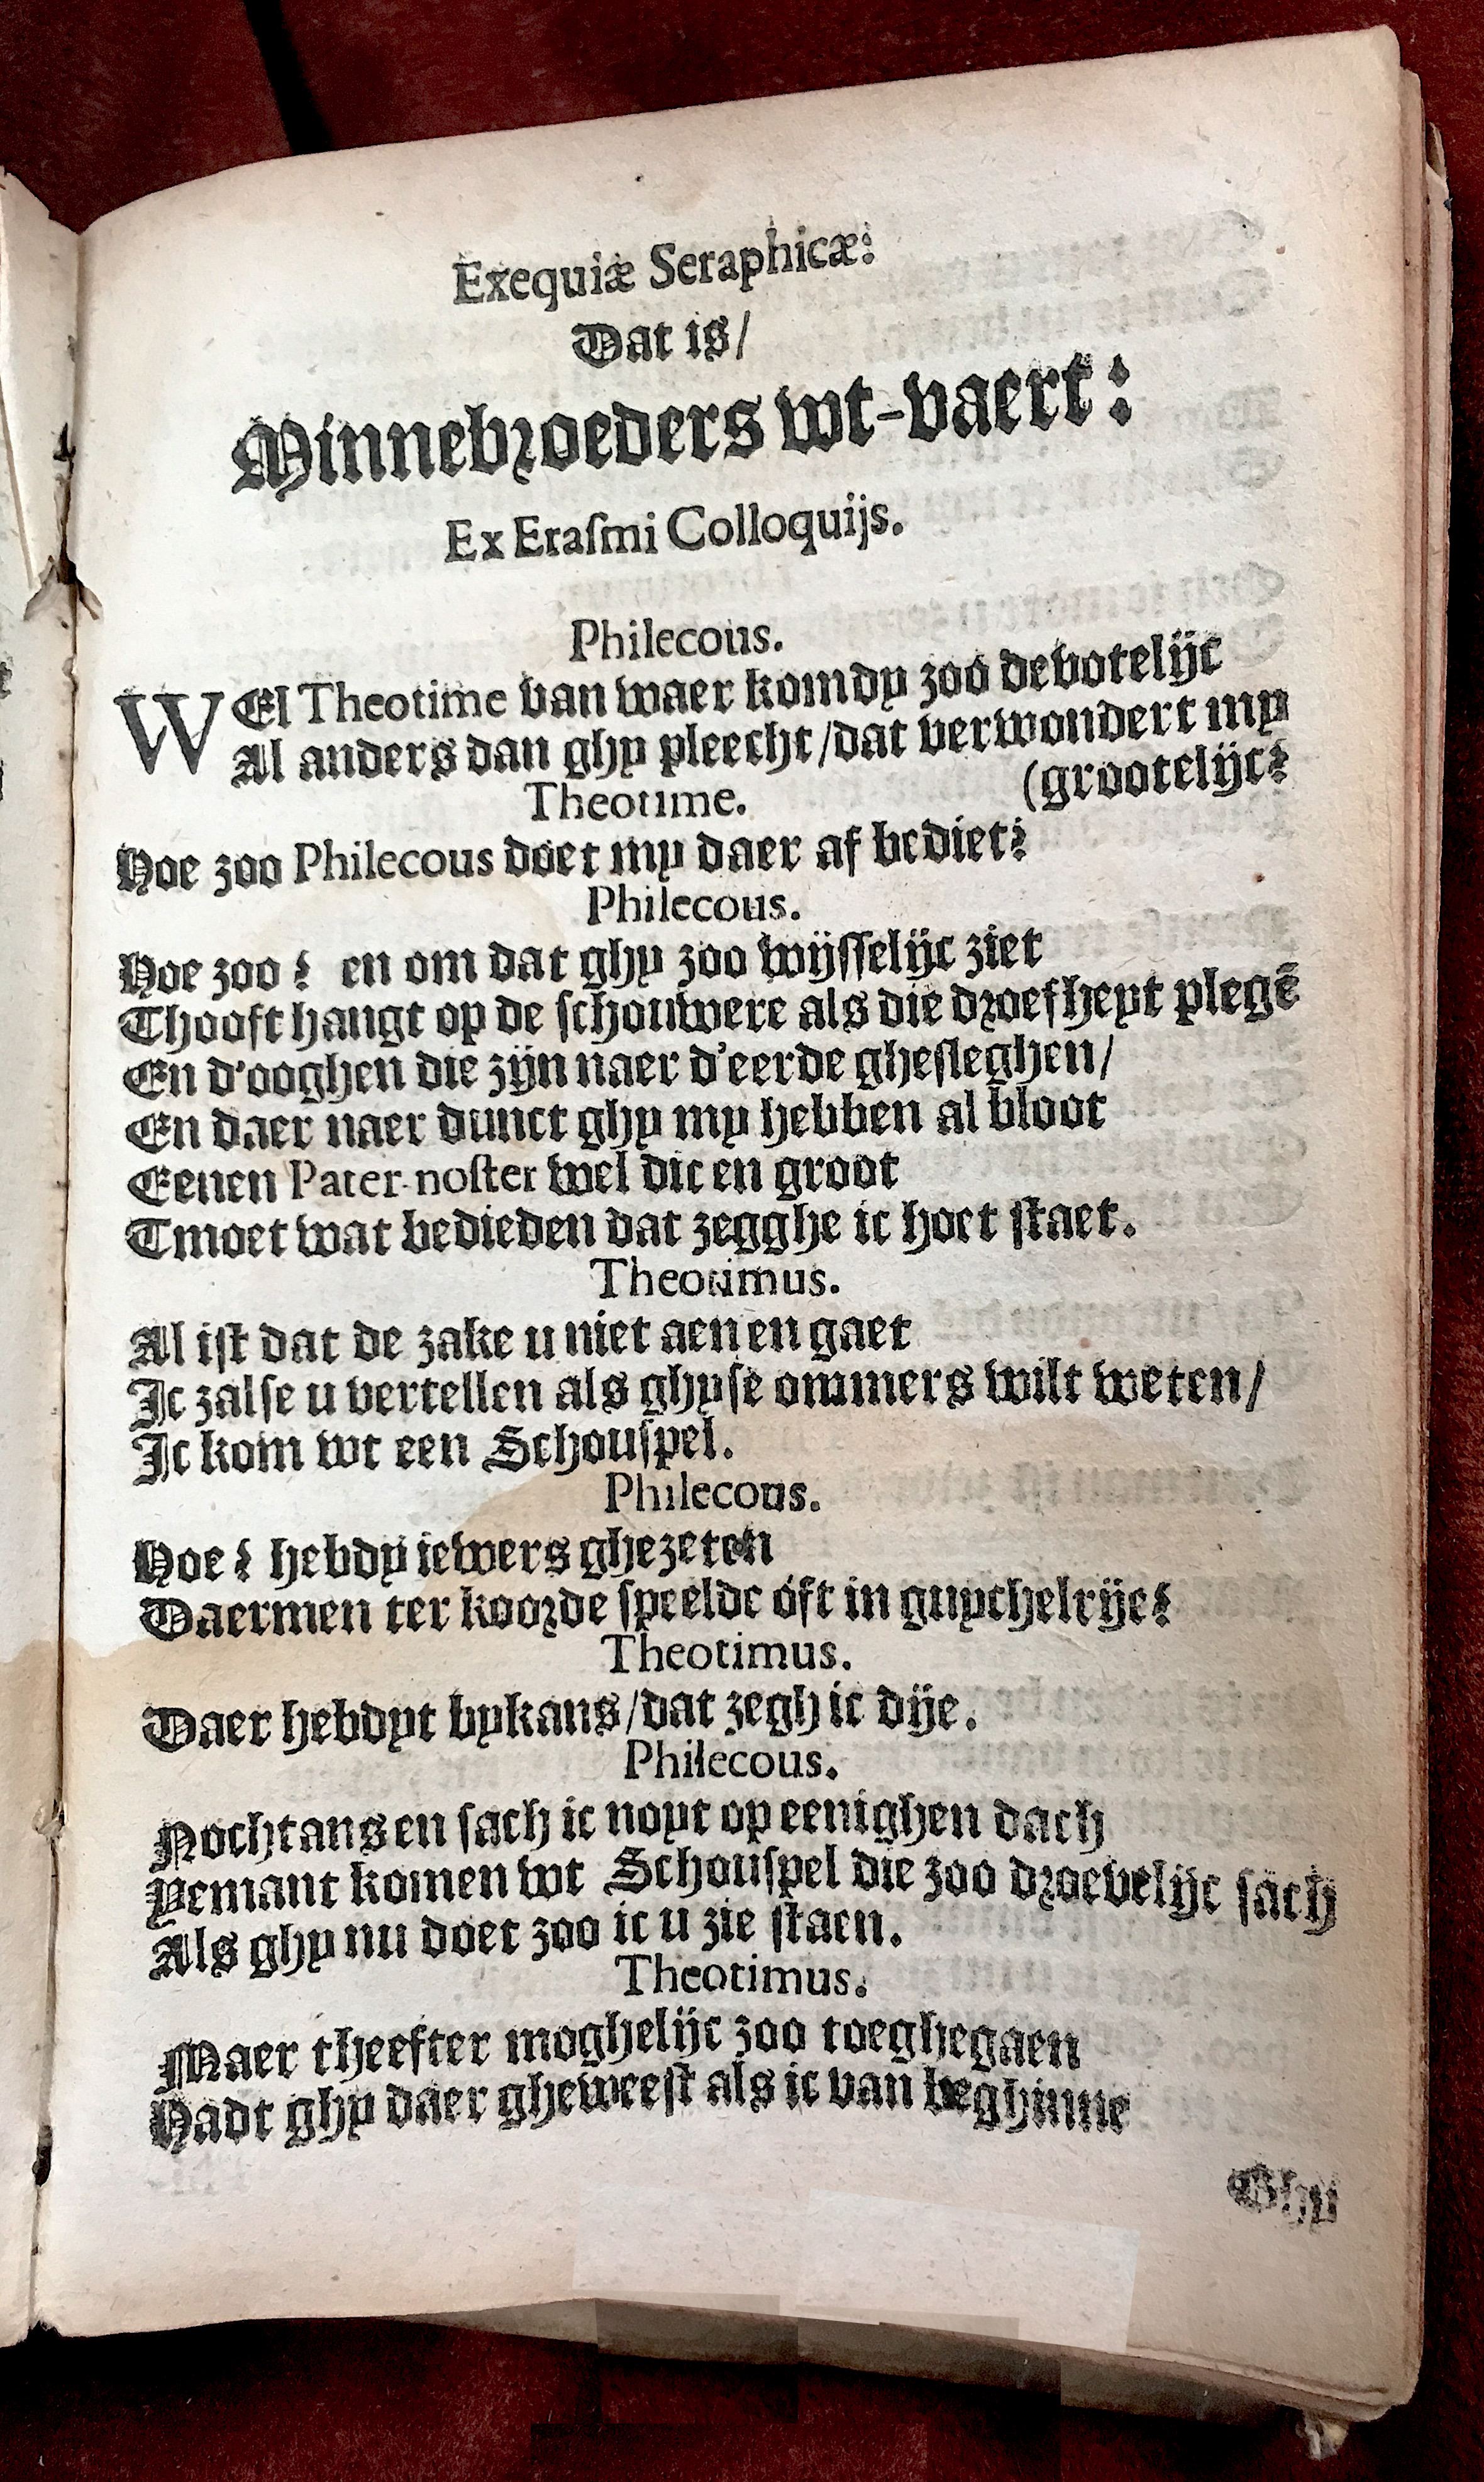 Exequiæ Seraphicæ:
Dat is/
Minnebroeders wt-vaert:
Ex Erasmi Colloquijs.
Philecous.
WEl Theotime van waer komdy zoo devotelijc
Al anders dan ghy pleecht/dat verwondert my
(grootelijc?
Theotime.
Hoe zoo Philecous doet my daer af bediet?
Philecous.
Hoe zoo? en om dat ghy zoo wijsselijc ziet
Thooft hangt op de schouwere als die droefheyt plegẽ
En d'ooghen die zijn naer d'eerde ghesleghen/
En daer naer dunct ghy my hebben al bloot
Eenen Pater-noster wel dic en groot
Tmoet wat bedieden dat zegghe ic hoet staet.
Theotimus.
Al ist dat de zake u niet aen en gaet
Ic zalse u vertellen als ghyse ommers wilt weten/
Ic kom wt een Schouspel.
Philecous.
Hoe? hebdy iewers ghezeten
Daermen ter koorde speelde óft in guychelrije?
Theotimus.
Daer hebdyt bykans/dat zegh ic dije.
Philecous.
Nochtans en sach ic noyt op eenighen dach
Yemant komen wt Schouspel die zoo droevelijc sach
Als ghy nu doet zoo ic u zie staen.
Theotimus.
Maer theefter moghelijc zoo toeghegaen
Hadt ghy daer gheweest als ic van beghinne
Ghy